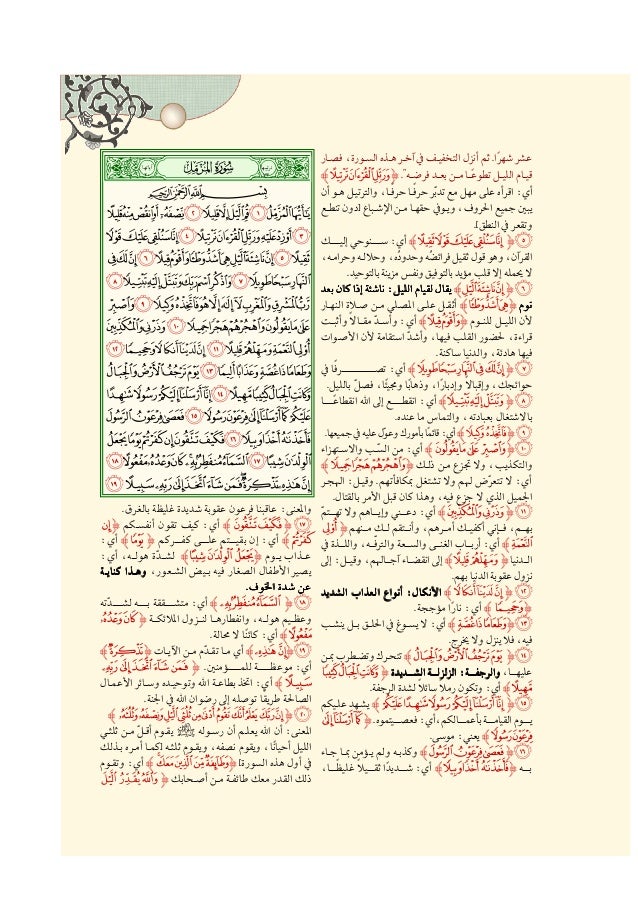 عشر شهرًا. ثم أنزل التخفيف في آخر هذه السورة، فصار
قيام الليل تطوعًا من بعد فرضه". ﴿وَرَتِّلِ ٱلۡقُرۡءَانَ تَرۡتِيلًا﴾
أي: اقرأه على مهل مع تدبّر حرفًا حرفًا، والترتيل هو أن
يبين جميع الحروف، ويوفي حقها من الإشباع [دون تنطع
وتقعر في النطق].
٥ ﴿إِنَّا سَنُلۡقِي عَلَيۡكَ قَوۡلٗا ثَقِيلًا﴾ أي: سنوحي إليك
القرآن، وهو قول ثقيل فرائضُه وحدودُه، وحلاله وحرامه،
لا يحمله إلا قلب مؤيد بالتوفيق ونفس مزينة بالتوحيد.
٦ ﴿إِنَّ نَاشِئَةَ ٱلَّيۡلِ﴾ يقال لقيام الليل: ناشئة إذا كان بعد
نوم ﴿هِيَ أَشَدُّ وَطۡـٔٗا﴾ أثقل على المصلي من صلاة النهار
لأن الليل للنوم ﴿وَأَقۡوَمُ قِيلًا﴾ أي: وأسدّ مقالًا وأثبت
قراءة، لحضور القلب فيها، وأشدّ استقامة لأن الأصوات
فيها هادئة، والدنيا ساكنة.
٧ ﴿إِنَّ لَكَ فِي ٱلنَّهَارِ سَبۡحٗا طَوِيلٗا﴾ أي: تصرفًا في
حوائجك، وإقبالًا وإدبارًا، وذهابًا ومجيئًا، فصلّ بالليل.
٨ ﴿وَتَبَتَّلۡ إِلَيۡهِ تَبۡتِيلٗا﴾ أي: انقطع إلى الله انقطاعًا
بالاشتغال بعبادته، والتماس ما عنده.
٩ ﴿فَٱتَّخِذۡهُ وَكِيلٗا﴾ أي: قائمًا بأمورك وعوّل عليه في جميعها.
١٠ ﴿وَٱصۡبِرۡ عَلَىٰ مَا يَقُولُونَ﴾ أي: من السّب والاستهزاء
والتكذيب، ولا تجزع من ذلك ﴿وَٱهۡجُرۡهُمۡ هَجۡرٗا جَمِيلٗا﴾
أي: لا تتعرّض لهم ولا تشتغل بمكافأتهم. وقيل: الهجر
الجميل الذي لا جزع فيه، وهذا كان قبل الأمر بالقتال.
١١ ﴿وَذَرۡنِي وَٱلۡمُكَذِّبِينَ﴾ أي: دعني وإياهم ولا تهتمّ
بهم، فإني أكفيك أمرهم، وأنتقم لك منهم ﴿أُوْلِي
ٱلنَّعۡمَةِ﴾ أي: أرباب الغنى والسعة والترفّه، واللذة في
الدنيا ﴿وَمَهِّلۡهُمۡ قَلِيلًا﴾ إلى انقضاء آجالهم، وقيل: إلى
نزول عقوبة الدنيا بهم.
١٢ ﴿إِنَّ لَدَيۡنَآ أَنكَالٗا﴾ الأنكال: أنواع العذاب الشديد
﴿وَجَحِيمٗا﴾ أي: نارًا مؤججة.
١٣ ﴿وَطَعَامٗا ذَا غُصَّةٖ﴾ أي: لا يسوغ في الحلق بل ينشب
فيه، فلا ينزل ولا يخرج.
١٤ ﴿يَوۡمَ تَرۡجُفُ ٱلۡأَرۡضُ وَٱلۡجِبَالُ﴾ تتحرك وتضطرب بمن
عليها، والرجفة: الزلزلة الشديدة ﴿وَكَانَتِ ٱلۡجِبَالُ كَثِيبٗا
مَّهِيلًا﴾ أي: وتكون رملًا سائلًا لشدة الرجفة.
١٥ ﴿إِنَّآ أَرۡسَلۡنَآ إِلَيۡكُمۡ رَسُولٗا شَٰهِدًا عَلَيۡكُمۡ﴾ يشهد عليكم
يوم القيامة بأعمالكم، أي: فعصيتموه. ﴿كَمَآ أَرۡسَلۡنَآ إِلَىٰ
فِرۡعَوۡنَ رَسُولٗا﴾ يعني: موسى.
١٦ ﴿فَعَصَىٰ فِرۡعَوۡنُ ٱلرَّسُولَ﴾ وكذبه ولم يؤمن بما جاء
به ﴿فَأَخَذۡنَٰهُ أَخۡذٗا وَبِيلٗا﴾ أي: شديدًا ثقيلًا غليظًا،
سُورَةُ المُزَّمِّل
بِسۡمِ ٱللَّهِ ٱلرَّحۡمَٰنِ ٱلرَّحِيمِ
يَٰٓأَيُّهَا ٱلۡمُزَّمِّلُ ١ قُمِ ٱلَّيۡلَ إِلَّا قَلِيلٗا ٢ نِّصۡفَهُۥٓ أَوِ ٱنقُصۡ مِنۡهُ قَلِيلًا
٣ أَوۡ زِدۡ عَلَيۡهِ وَرَتِّلِ ٱلۡقُرۡءَانَ تَرۡتِيلًا ٤ إِنَّا سَنُلۡقِي عَلَيۡكَ قَوۡلٗا
ثَقِيلًا ٥ إِنَّ نَاشِئَةَ ٱلَّيۡلِ هِيَ أَشَدُّ وَطۡـٔٗا وَأَقۡوَمُ قِيلًا ٦ إِنَّ لَكَ فِي
ٱلنَّهَارِ سَبۡحٗا طَوِيلٗا ٧ وَٱذۡكُرِ ٱسۡمَ رَبِّكَ وَتَبَتَّلۡ إِلَيۡهِ تَبۡتِيلٗا ٨
رَّبُّ ٱلۡمَشۡرِقِ وَٱلۡمَغۡرِبِ لَآ إِلَٰهَ إِلَّا هُوَ فَٱتَّخِذۡهُ وَكِيلٗا ٩ وَٱصۡبِرۡ
عَلَىٰ مَا يَقُولُونَ وَٱهۡجُرۡهُمۡ هَجۡرٗا جَمِيلٗا ١٠ وَذَرۡنِي وَٱلۡمُكَذِّبِينَ
أُوْلِي ٱلنَّعۡمَةِ وَمَهِّلۡهُمۡ قَلِيلًا ١١ إِنَّ لَدَيۡنَآ أَنكَالٗا وَجَحِيمٗا ١٢
وَطَعَامٗا ذَا غُصَّةٖ وَعَذَابًا أَلِيمٗا ١٣ يَوۡمَ تَرۡجُفُ ٱلۡأَرۡضُ وَٱلۡجِبَالُ
وَكَانَتِ ٱلۡجِبَالُ كَثِيبٗا مَّهِيلًا ١٤ إِنَّآ أَرۡسَلۡنَآ إِلَيۡكُمۡ رَسُولٗا شَٰهِدًا
عَلَيۡكُمۡ كَمَآ أَرۡسَلۡنَآ إِلَىٰ فِرۡعَوۡنَ رَسُولٗا ١٥ فَعَصَىٰ فِرۡعَوۡنُ ٱلرَّسُولَ
فَأَخَذۡنَٰهُ أَخۡذٗا وَبِيلٗا ١٦ فَكَيۡفَ تَتَّقُونَ إِن كَفَرۡتُمۡ يَوۡمٗا يَجۡعَلُ
ٱلۡوِلۡدَٰنَ شِيبًا ١٧ ٱلسَّمَآءُ مُنفَطِرُۢ بِهِۦۚ كَانَ وَعۡدُهُۥ مَفۡعُولًا ١٨
إِنَّ هَٰذِهِۦ تَذۡكِرَةٞۖ فَمَن شَآءَ ٱتَّخَذَ إِلَىٰ رَبِّهِۦ سَبِيلًا ١٩
والمعنى: عاقبنا فرعون عقوبة شديدة غليظة بالغرق.
١٧ ﴿فَكَيۡفَ تَتَّقُونَ﴾ أي: كيف تقون أنفسكم ﴿إِن
كَفَرۡتُمۡ﴾ أي: إن بقيتم على كفركم ﴿يَوۡمٗا﴾ أي:
عذاب يوم ﴿يَجۡعَلُ ٱلۡوِلۡدَٰنَ شِيبًا﴾ لشدّة هوله، أي:
يصير الأطفال الصغار فيه بيض الشعور، وهذا كناية
عن شدة الخوف.
١٨ ﴿ٱلسَّمَآءُ مُنفَطِرُۢ بِهِۦ﴾ أي: متشققة به لشدّته
وعظيم هوله، وانفطارها لنزول الملائكة ﴿كَانَ وَعۡدُهُۥ
مَفۡعُولًا﴾ أي: كائنًا لا محالة.
١٩ ﴿إِنَّ هَٰذِهِۦ﴾ أي: ما تقدّم من الآيات ﴿تَذۡكِرَةٞ﴾
أي: موعظة للمؤمنين. ﴿فَمَن شَآءَ ٱتَّخَذَ إِلَىٰ رَبِّهِۦ
سَبِيلًا﴾ أي: اتخذ بطاعة الله وتوحيده وسائر الأعمال
الصالحة طريقًا توصله إلى رضوان الله في الجنة.
٢٠ ﴿إِنَّ رَبَّكَ يَعۡلَمُ أَنَّكَ تَقُومُ أَدۡنَىٰ مِن ثُلُثَيِ ٱلَّيۡلِ وَنِصۡفَهُۥ وَثُلُثَهُۥ﴾
المعنى: أن الله يعلم أن رسوله ﷺ يقوم أقلّ من ثلثي
الليل أحيانًا، ويقوم نصفه، ويقوم ثلثه [كما أمره بذلك
في أول هذه السورة] ﴿وَطَآئِفَةٞ مِّنَ ٱلَّذِينَ مَعَكَ﴾ أي: وتقوم
ذلك القدر معك طائفة من أصحابك ﴿وَٱللَّهُ يُقَدِّرُ ٱلَّيۡلَ